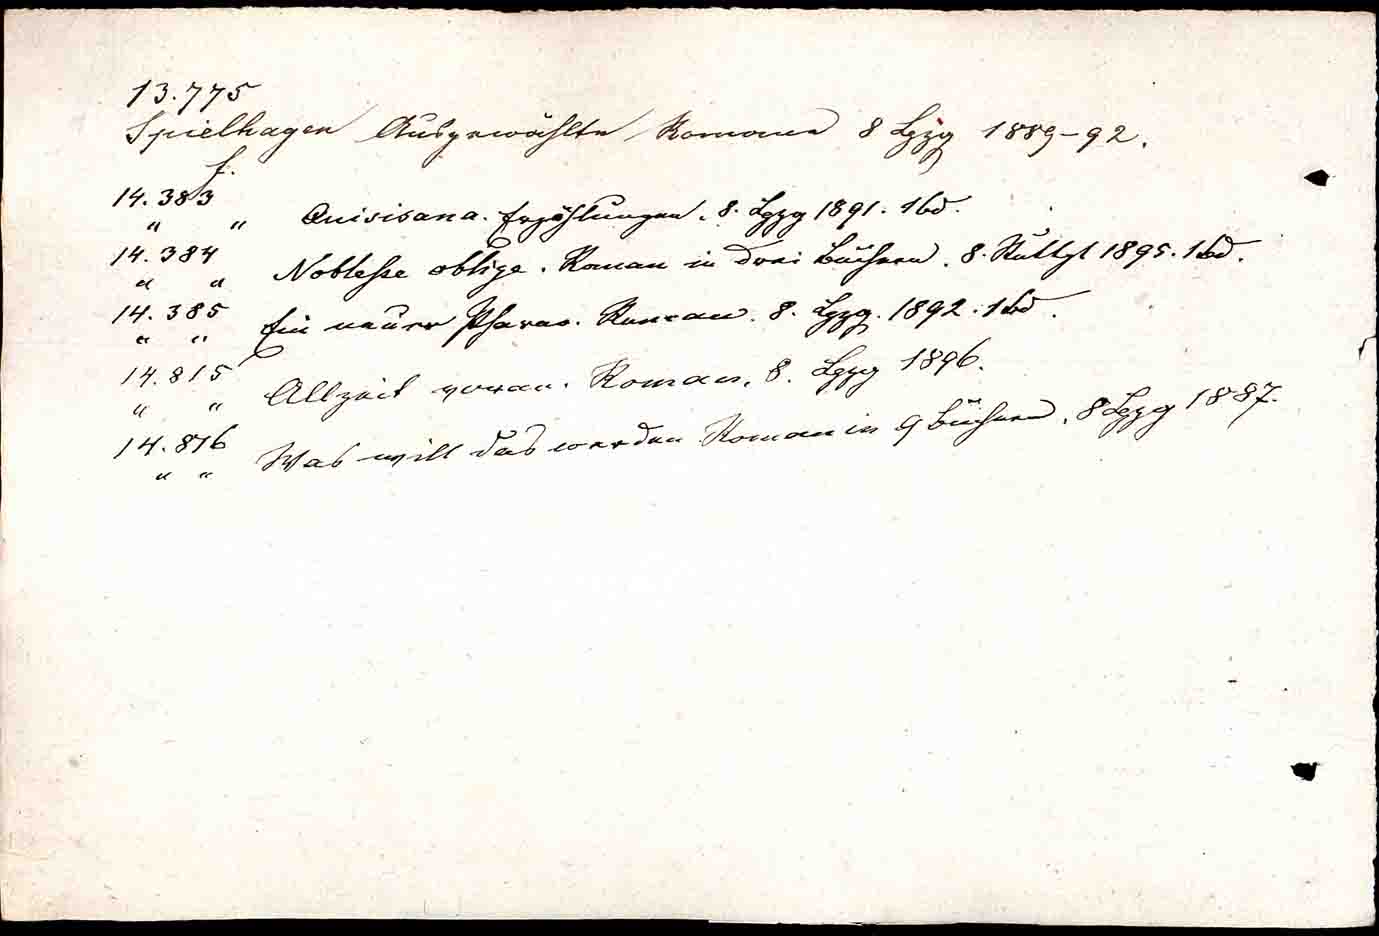 13.775
Spielhagen Ausgewählte Romane 8 Lpzg 1889-92.
f.
14.383
" " Quisisana. Erzählungen. 8. Lpzg 1891. 1bd.
14.384
" " Noblesse oblige. Roman in drei Büchern. 8. Stuttgt 1895. 1bd.
14.385
" " Ein neuer Pharao. Roman. 8. Lpzg. 1892. 1bd.
14.815
" " Allzeit voran. Roman. 8. Lpzg 1896.
14.816
" " Was will das werden Roman in 9 Büchern. 8 Lpzg 1887.